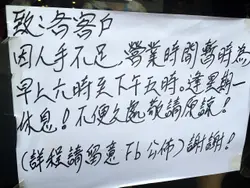 致:各客戶
因人手不足,營業時間暫時為
早上六時至下午五時。逢星期一
休息!不便之處敬請原諒!
(詳程請留意Fb公佈)謝謝!